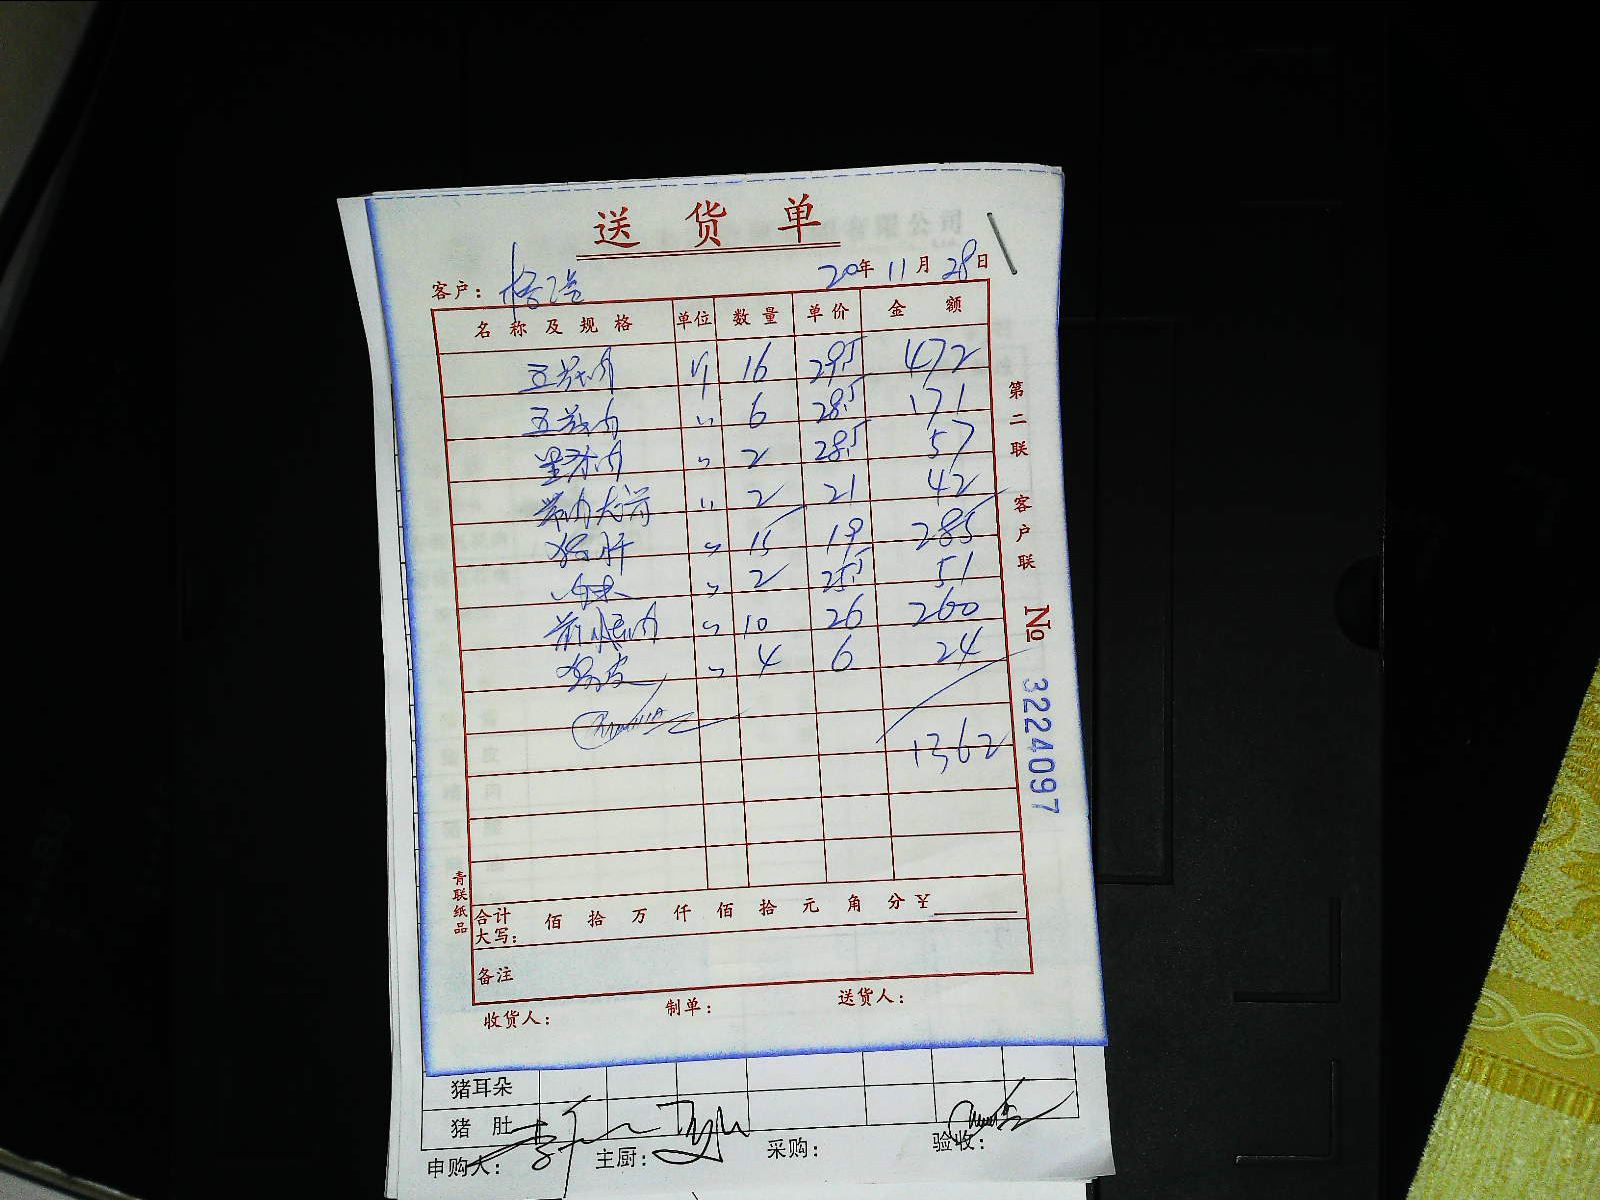 送货单
客户： 20年 11月 28日
名称及规格 单位 数量 单价 金额
五花肉 斤 16 29.5 472
五花肉 〃 6 28.5 171
里脊肉 〃 2 28.5 57
带肉大骨 〃 2 21 42
猪肝 〃 15 19 285
肉末 〃 2 25.5 51
前腿肉 〃 10 26 260
猪皮 〃 4 6 24
1362
合计大写： 佰 拾 万 仟 佰 拾 元 角 分 ¥
备注
收货人： 制单： 送货人：
第二联 客户联
№ 3224097
青联纸品
猪耳朵
猪肚
申购人： 主厨： 采购： 验收：